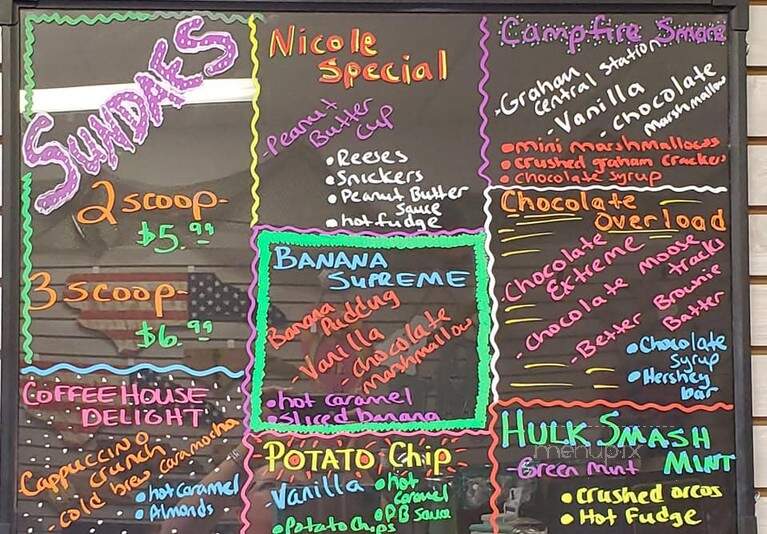 SUNDAES
2 scoop-
$5.99
3 scoop-
$6.99
COFFEE HOUSE
DELIGHT
Cappuccino
crunch
- cold brew caramocha
• hot caramel
• Almonds
Nicole
Special
- Peanut
Butter
Cup
• Reeses
• Snickers
• Peanut Butter
Sauce
• hot fudge
BANANA
SUPREME
Banana
Pudding
- Vanilla
- chocolate
marshmallow
• hot caramel
• sliced banana
POTATO Chip
Vanilla
• hot
caramel
• PB sauce
• Potato Chips
Campfire Smore
- Graham
central station
- Vanilla
- Chocolate
marshmallow
• mini marshmallows
• crushed graham crackers
• chocolate syrup
Chocolate
overload
- Chocolate
Extreme
- Chocolate moose
tracks
- Better Brownie
Batter
• Chocolate
syrup
• Hershey
bar
HULK SMASH
MINT
- Green mint
• crushed oreos
• Hot Fudge
menupix